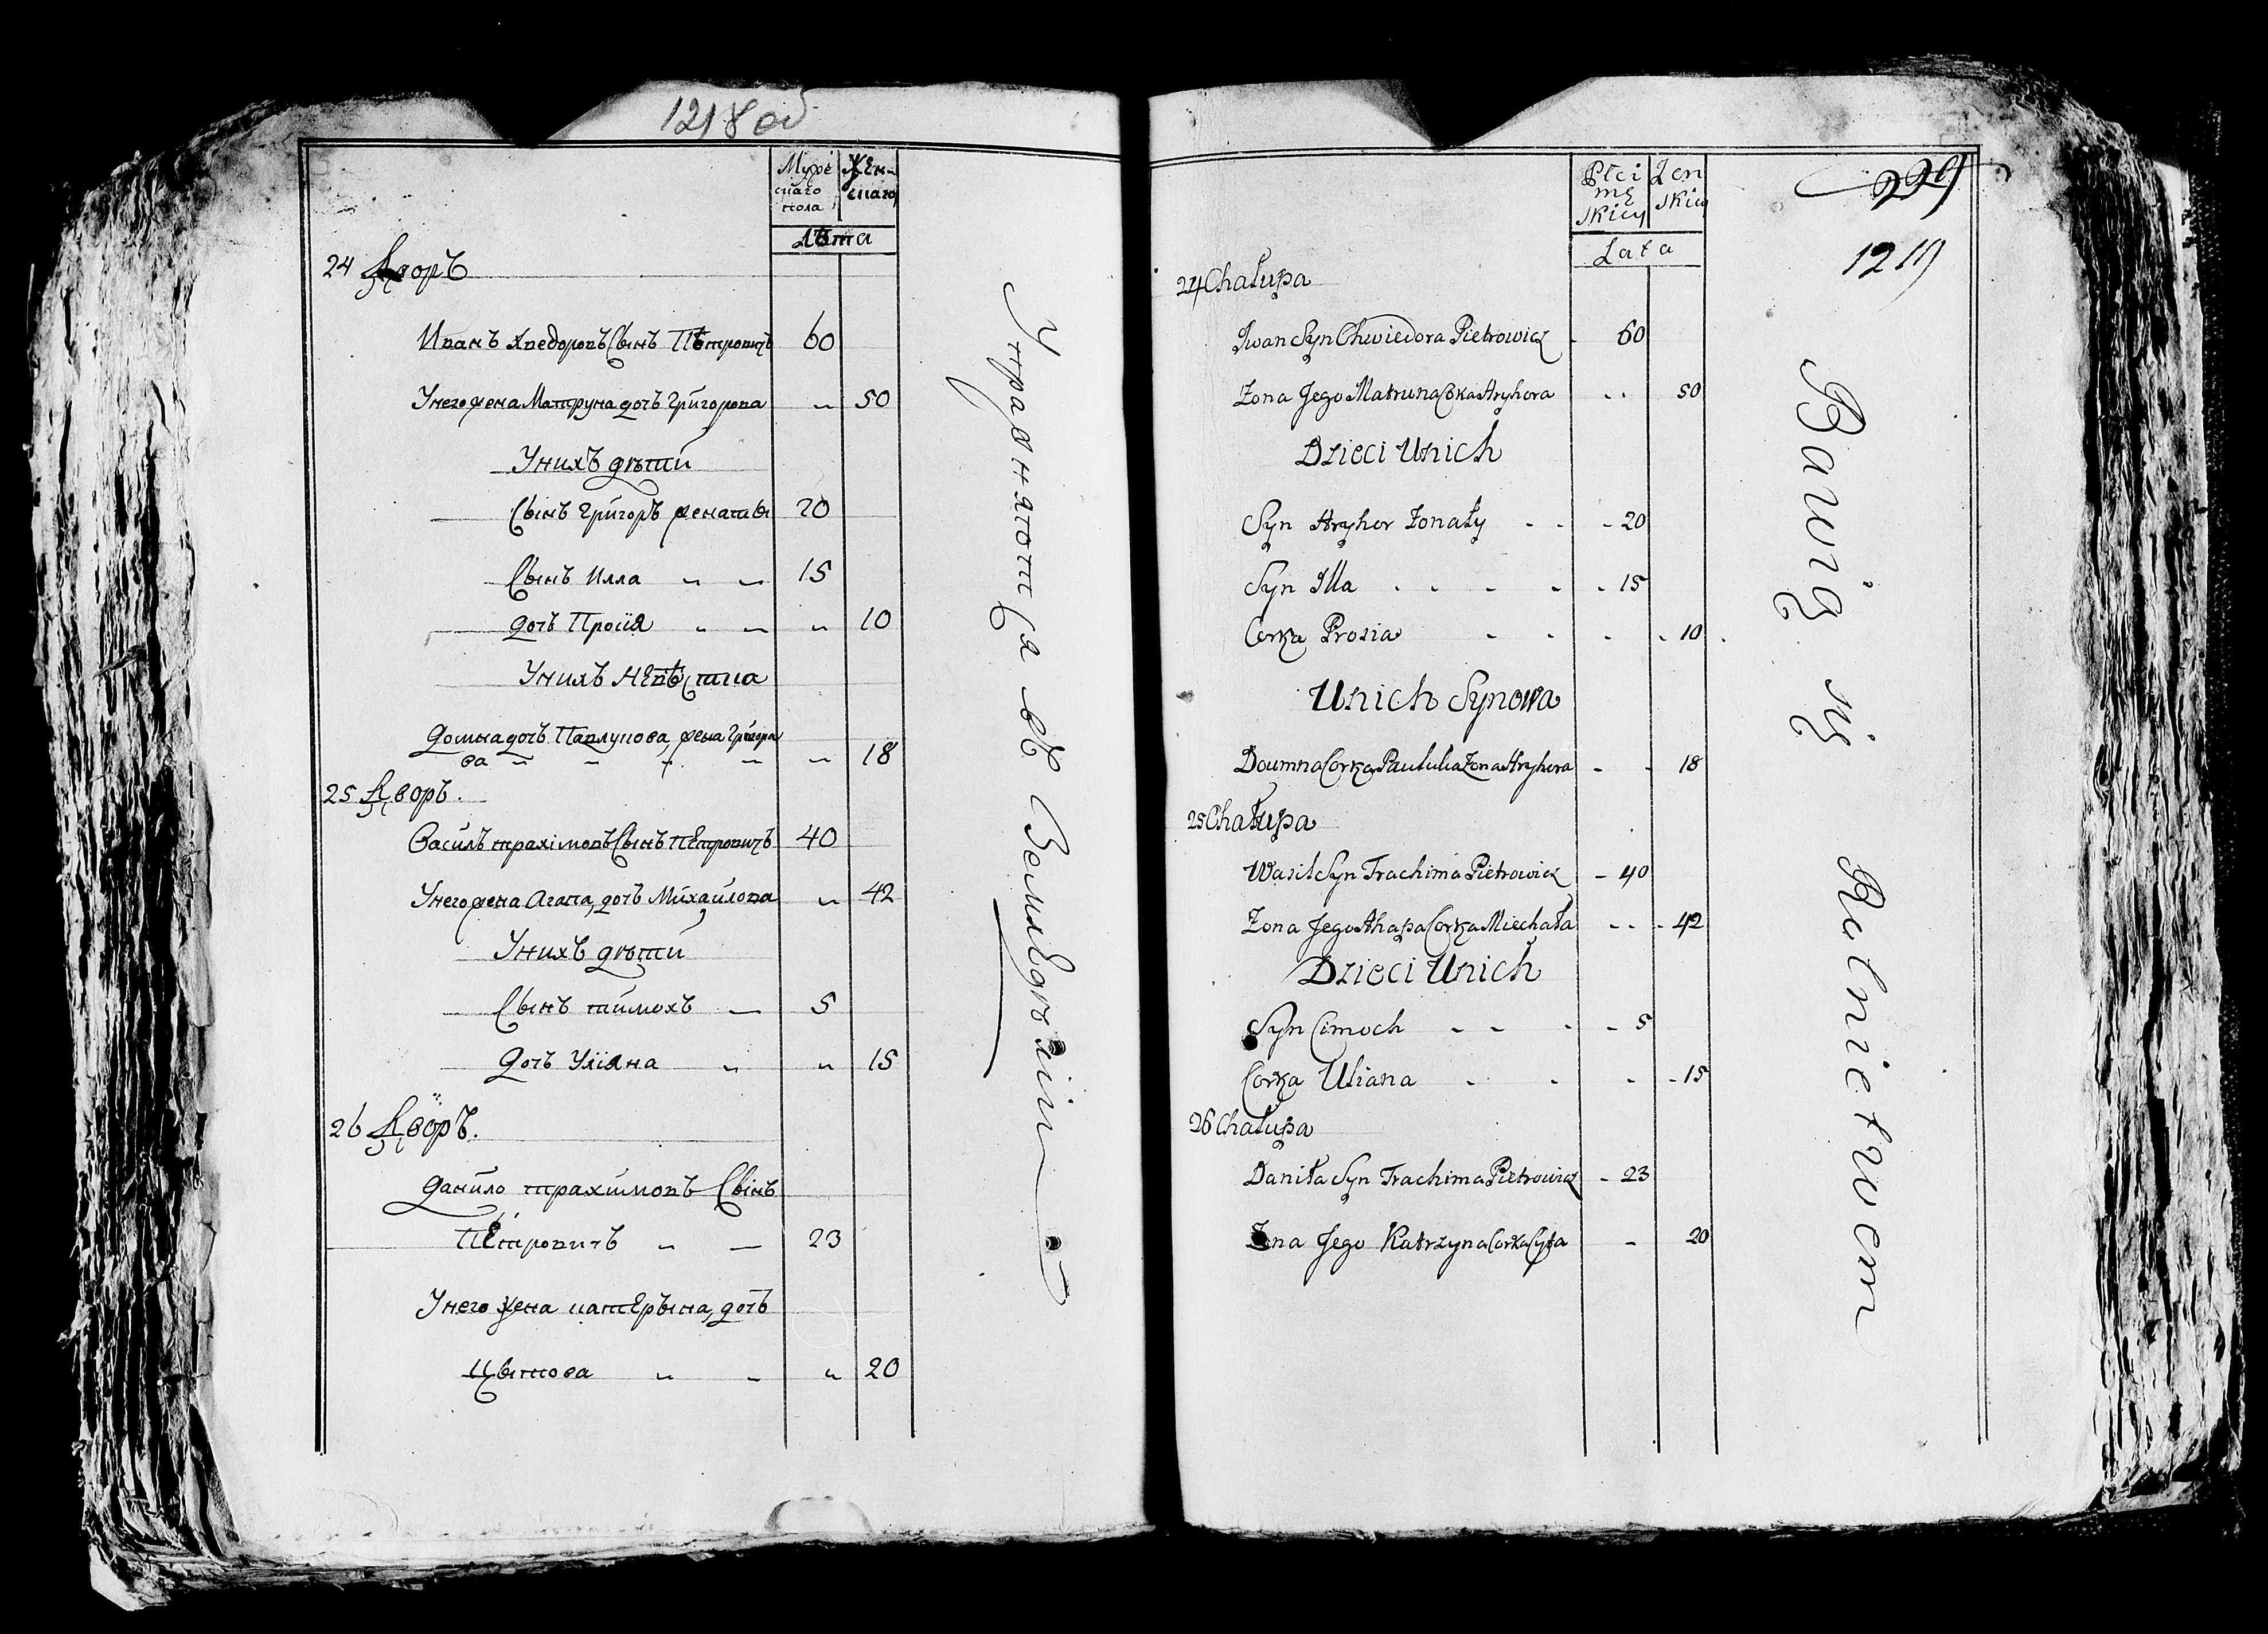 1218 об
Мужескаго пола
Женскаго
Лѣта
24 Дворъ
Иванъ Хведоровъ Сынъ Пѣтровичъ 60
Унего жена Матруна дочъ Григорова „ 50
Унихъ дѣти
Сынъ Григоръ женаты 20
Сынъ Илла „ „ 15
дочъ Прося „ „ „ 10
Унихъ Невѣстка
Домна дочъ Павлукова, жена Григора
ва „ „ „ „ „ 18
25 Дворъ.
Василъ трахимовъ Сынъ Петровичъ 40
Унего жена Агапа, дочъ Михаилова „ 42
Унихъ дѣти
Сынъ тимохъ — 5
Дочъ Уліяна „ „ 15
26 Дворъ.
Данило трахимовъ Сынъ
Петровичъ „ — 23
Унего жена катерына, дочъ
Цытова „ „ „ 20
Упражняютця въ Земледѣліи
229
1219
Płci męskicy
Zenskicy
Lata
24 Chałupa
Jwan Syn Chwiedora Pietrowicz - 60
Zona Jego Matruna Corka Hryhora - - 50
Dzieci Unich
Syn Hryhor Zonaty - - - 20
Syn Jlla - - - - - 15
Corka Prosia - - - - 10
Unich Synowa
Doumna Corka Pauluka Zona Hryhora - - 18
25 Chałupa
Wasil Syn Trachima Pietrowicz - 40
Zona Jego Ahapa Corka Miechała - - - 42
Dzieci Unich
Syn Cimoch - - - - 5
Corka Uliana - - - - 15
26 Chałupa
Daniła Syn Trachima Pietrowicz - 23
Zona Jego Katrzyna Corka Cyta - 20
Bawią się Rolnictwem